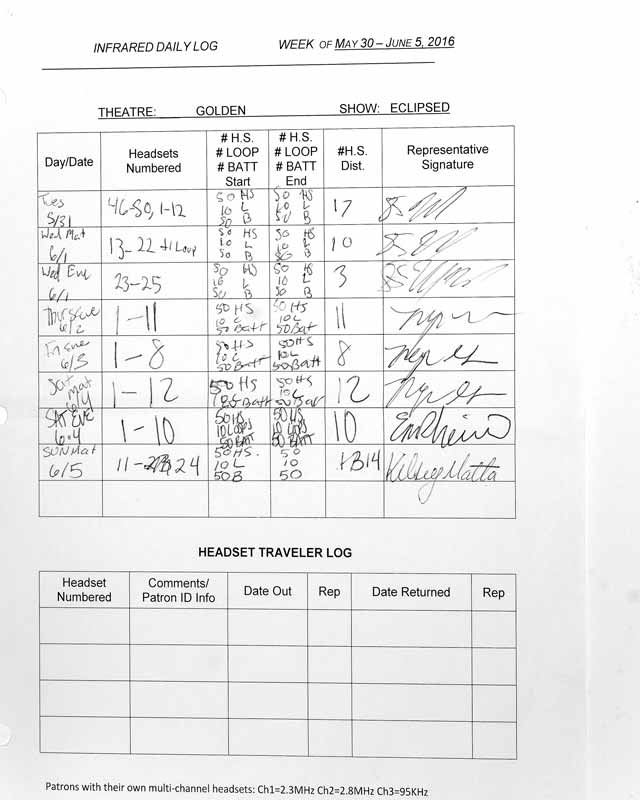 INFRARED DAILY LOG WEEK OF MAY 30 – JUNE 5, 2016
THEATRE: GOLDEN SHOW: ECLIPSED
Day/Date Headsets Numbered # H.S. # LOOP # BATT Start # H.S. # LOOP # BATT End #H.S. Dist. Representative Signature
Tues 5/31 46-50, 1-12 50 HS 10 L 50 B 50 HS 10 L 50 B 17
Wed Mat 6/1 13-22 +1 Loop 50 HS 10 L 50 B 50 HS 10 L 50 B 10
Wed Eve 6/1 23-25 50 HS 10 L 50 B 50 HS 10 L 50 B 3
Thurs eve 6/2 1-11 50 HS 10 L 50 Batt 50 HS 10 L 50 Bat 11
Fri eve 6/3 1-8 50 HS 10 L 50 Batt 50 HS 10 L 50 Batt 8
Sat mat 6/4 1-12 50 HS Batt 50 HS 10 L 50 Bat 12
SAT EVE 6-4 1-10 50 HS 10 LOOPS 50 BATT 50 HS 10 LOOPS 50 BATT 10
SUN Mat 6/5 11-24 50 HS. 10 L 50 B 50 10 50 14 Kelsey Matta
HEADSET TRAVELER LOG
Headset Numbered Comments/ Patron ID Info Date Out Rep Date Returned Rep
Patrons with their own multi-channel headsets: Ch1=2.3MHz Ch2=2.8MHz Ch3=95KHz